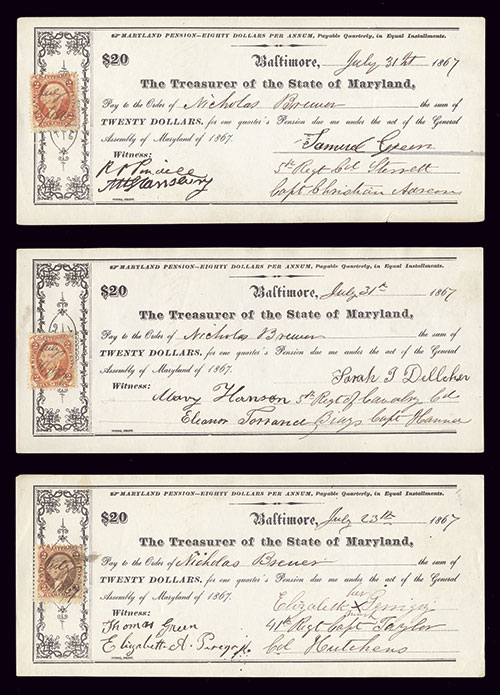 MARYLAND PENSION—EIGHTY DOLLARS PER ANNUM, Payable Quarterly, in Equal Installments.
$20 Baltimore, July 31st 1867
The Treasurer of the State of Maryland,
Pay to the Order of Nicholas Brewer the sum of
TWENTY DOLLARS, for one quarter's Pension due me under the act of the General
Assembly of Maryland of 1867.
Samuel Green
Witness:
5th Regt Col Sterrett
Capt Christian
MARYLAND PENSION—EIGHTY DOLLARS PER ANNUM, Payable Quarterly, in Equal Installments.
$20 Baltimore, July 31st 1867
The Treasurer of the State of Maryland,
Pay to the Order of Nicholas Brewer the sum of
TWENTY DOLLARS, for one quarter's Pension due me under the act of the General
Assembly of Maryland of 1867.
Sarah
Witness:
Mary Hanson 5th Regt of Cavalry Col
Eleanor Torrance Biays Capt Hanna
MARYLAND PENSION—EIGHTY DOLLARS PER ANNUM, Payable Quarterly, in Equal Installments.
$20 Baltimore, July 23th 1867
The Treasurer of the State of Maryland,
Pay to the Order of Nicholas Brewer the sum of
TWENTY DOLLARS, for one quarter's Pension due me under the act of the General
Assembly of Maryland of 1867.
her
Elizabeth X
mark
Witness:
Thomas Green 41st Regt Capt Taylor
Elizabeth A. Col Hutchens